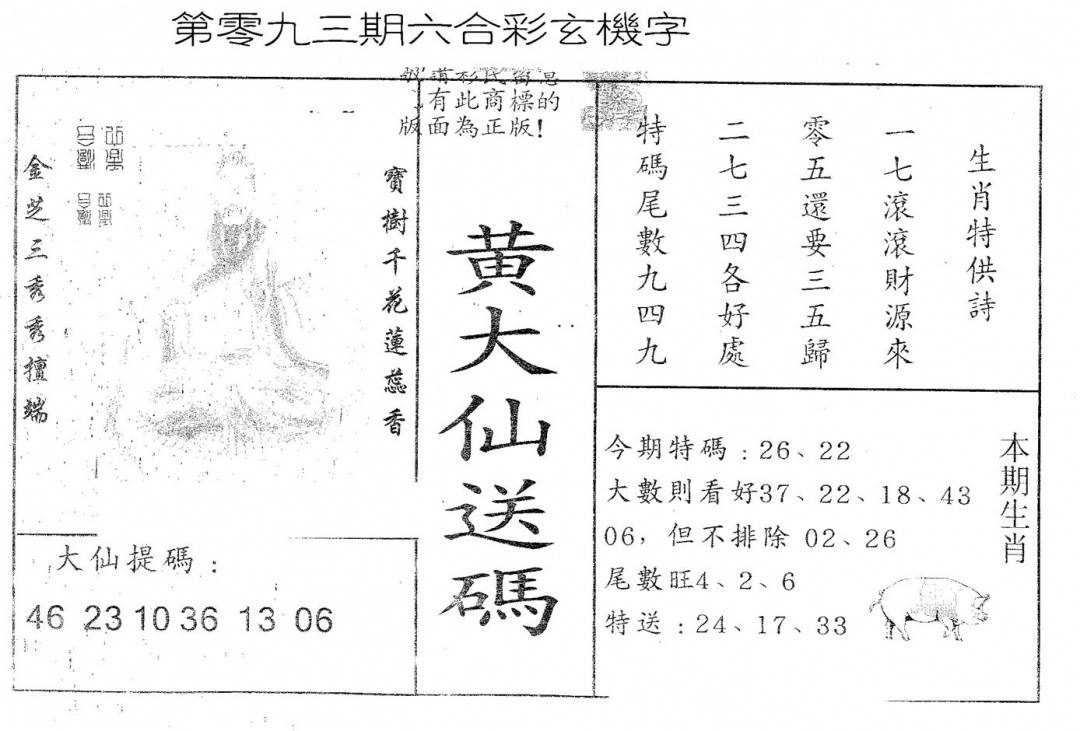 第零九三期六合彩玄機字
有此商標的
版面為正版!
生肖特供詩
一七滾滾財源來
零五還要三五歸
二七三四各好處
特碼尾數九四九
黃大仙送碼
寶樹千花蓮蕊香
金芝三秀秀擅端
大仙提碼：
46 23 10 36 13 06
本期生肖
今期特碼：26、22
大數則看好37、22、18、43
06，但不排除 02、26
尾數旺4、2、6
特送：24、17、33